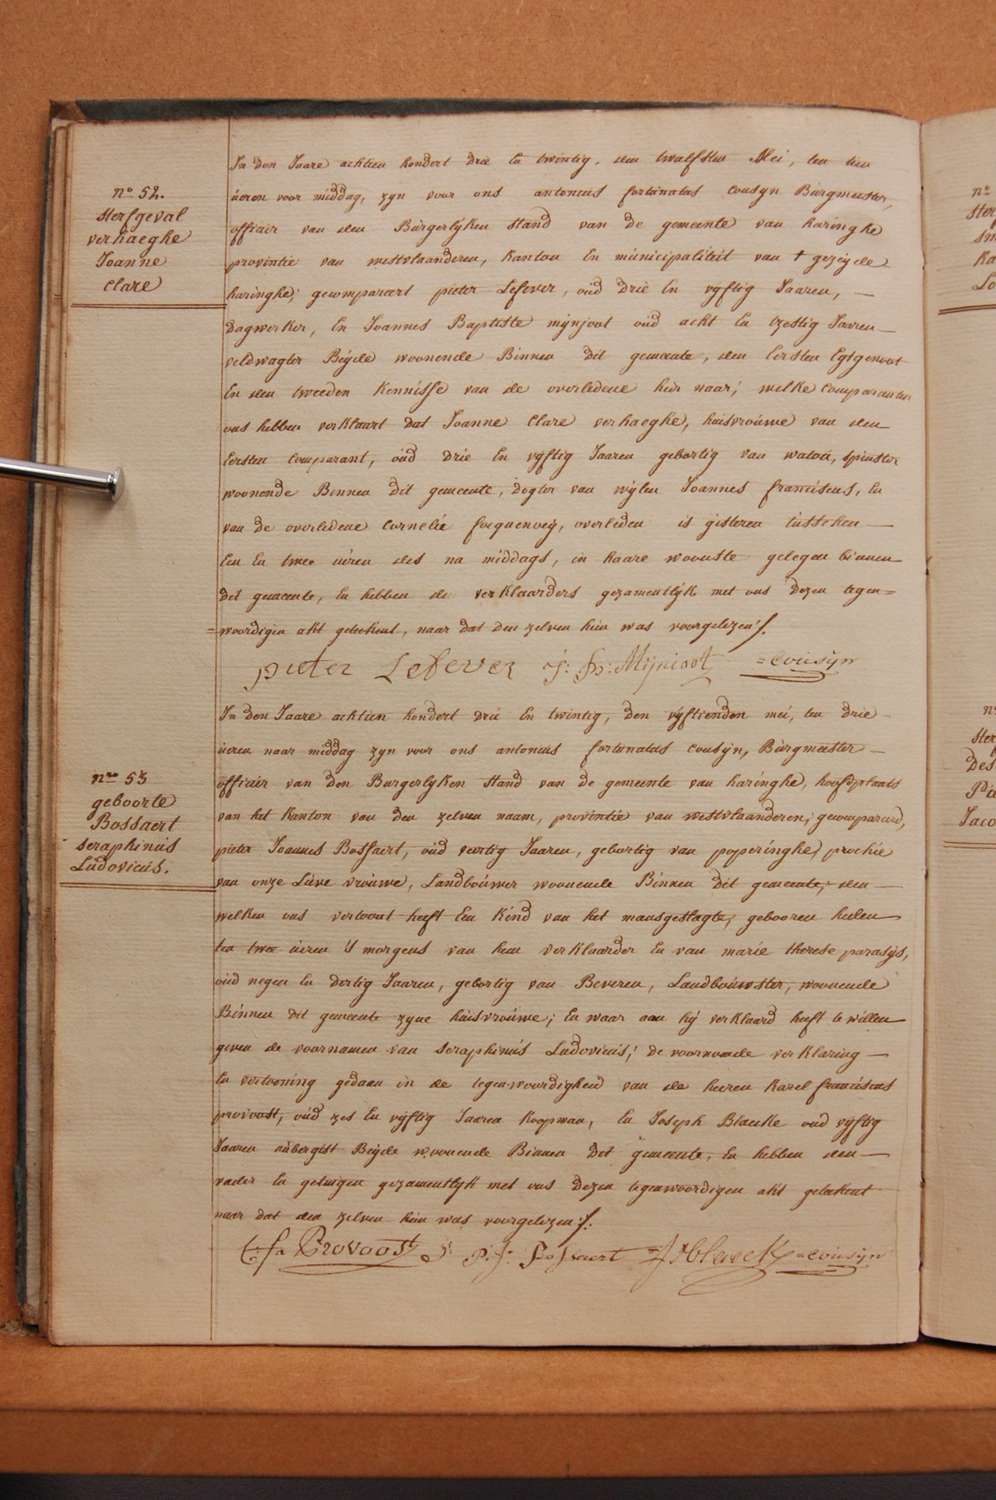 nº 52.
sterfgeval
verhaeghe
Joanne
Clare
In den Jaare achtien hondert drie En twintig, den twalfsten Mei, ten tien
üeren voor middag, zyn voor ons antonius fortunatus cousyn Burgmeester,
officier van den Burgerlÿken stand van de gemeente van haringhe
provintie van westvlaanderen, kanton En municipaliteit van † gezeÿde
haringhe; gecompareert pieter Lefever, oüd drie En vyftig Jaaren, —
dagwerker, En Joannes Baptiste mijnjoot oüd acht En tzestig Jaaren —
veldwagter Beÿde woonende Binnen dit gemeente, den Eersten Egtgenoot
En den tweeden kennisse van de overledene hier naar; welke comparanten
ons hebben verklaart dat Joanne Clare verhaeghe, huisvroúwe van den
Eersten comparant, oüd drie En vyftig Jaaren gebortig van watoú, spinster
woonende Binnen dit gemeente, dogter van wÿlen Joannes franciscus, En
van de overledene Cornelie foequenoeÿ, overleden is gisteren tüsschen —
Een En twee üeren des na middags, in haare woonste gelegen binnen
dit gemeente, En hebben de verklaarders gezamentlÿk met ons dezen tegen=
=woordigen akt geteekent, naar dat den zelven hún was voorgelezen ./.
pieter Lefever J: Bs: Mijnjoot =cousÿn
In den Jaare achtien hondert drie En twintig, den vÿftienden mei, ten drie
üeren naar middag zyn voor ons antonius fortunatus cousÿn, Burgmeester —
officier van den Burgerlyken stand van de gemeente van haringhe, hoofdplaats
van het kanton van den zelven naam, provintie van westvlaanderen, gecompareerd,
pieter Joannes Bossaert, oüd veertig Jaaren, gebortig van poperinghe, prochie
van onze Lieve vrouwe, Landboúwer woonende Binnen dit gemeente, den —
welken ons vertoont heeft Een kind van het mansgeslagte, gebooren heden
ten twee üeren 's morgens van hem verklaarder En van marie therese paradÿs,
oüd negen En dertig Jaaren, gebortig van Beveren, Landboúwster, woonende
Binnen dit gemeente zyne huisvroúwe; En waar aan hÿ verklaard heeft te willen
geven de voornamen van seraphinus Ludovicus; de voornoemde verklaring —
En vertooning gedaan in de tegenwoordigheid van de heeren karel franciscus
provoost, oüd zes En vÿftig Jaaren koopman, En Joseph Blaeke oud vÿftig
Jaaren aübergist Beÿde woonende Binnen dit gemeente, En hebben den —
vader En getuigen gezamentlÿk met ons dezen tegenwoordigen akt geteekent
naar dat den zelven hún was voorgelezen ./.
nro 53
geboorte
Bossaert
seraphinus
Ludovicus.
C: fs Provoost P: J: Bossaert =cousÿn
nº
ster
nº
ster
Des
Pi
Jaco